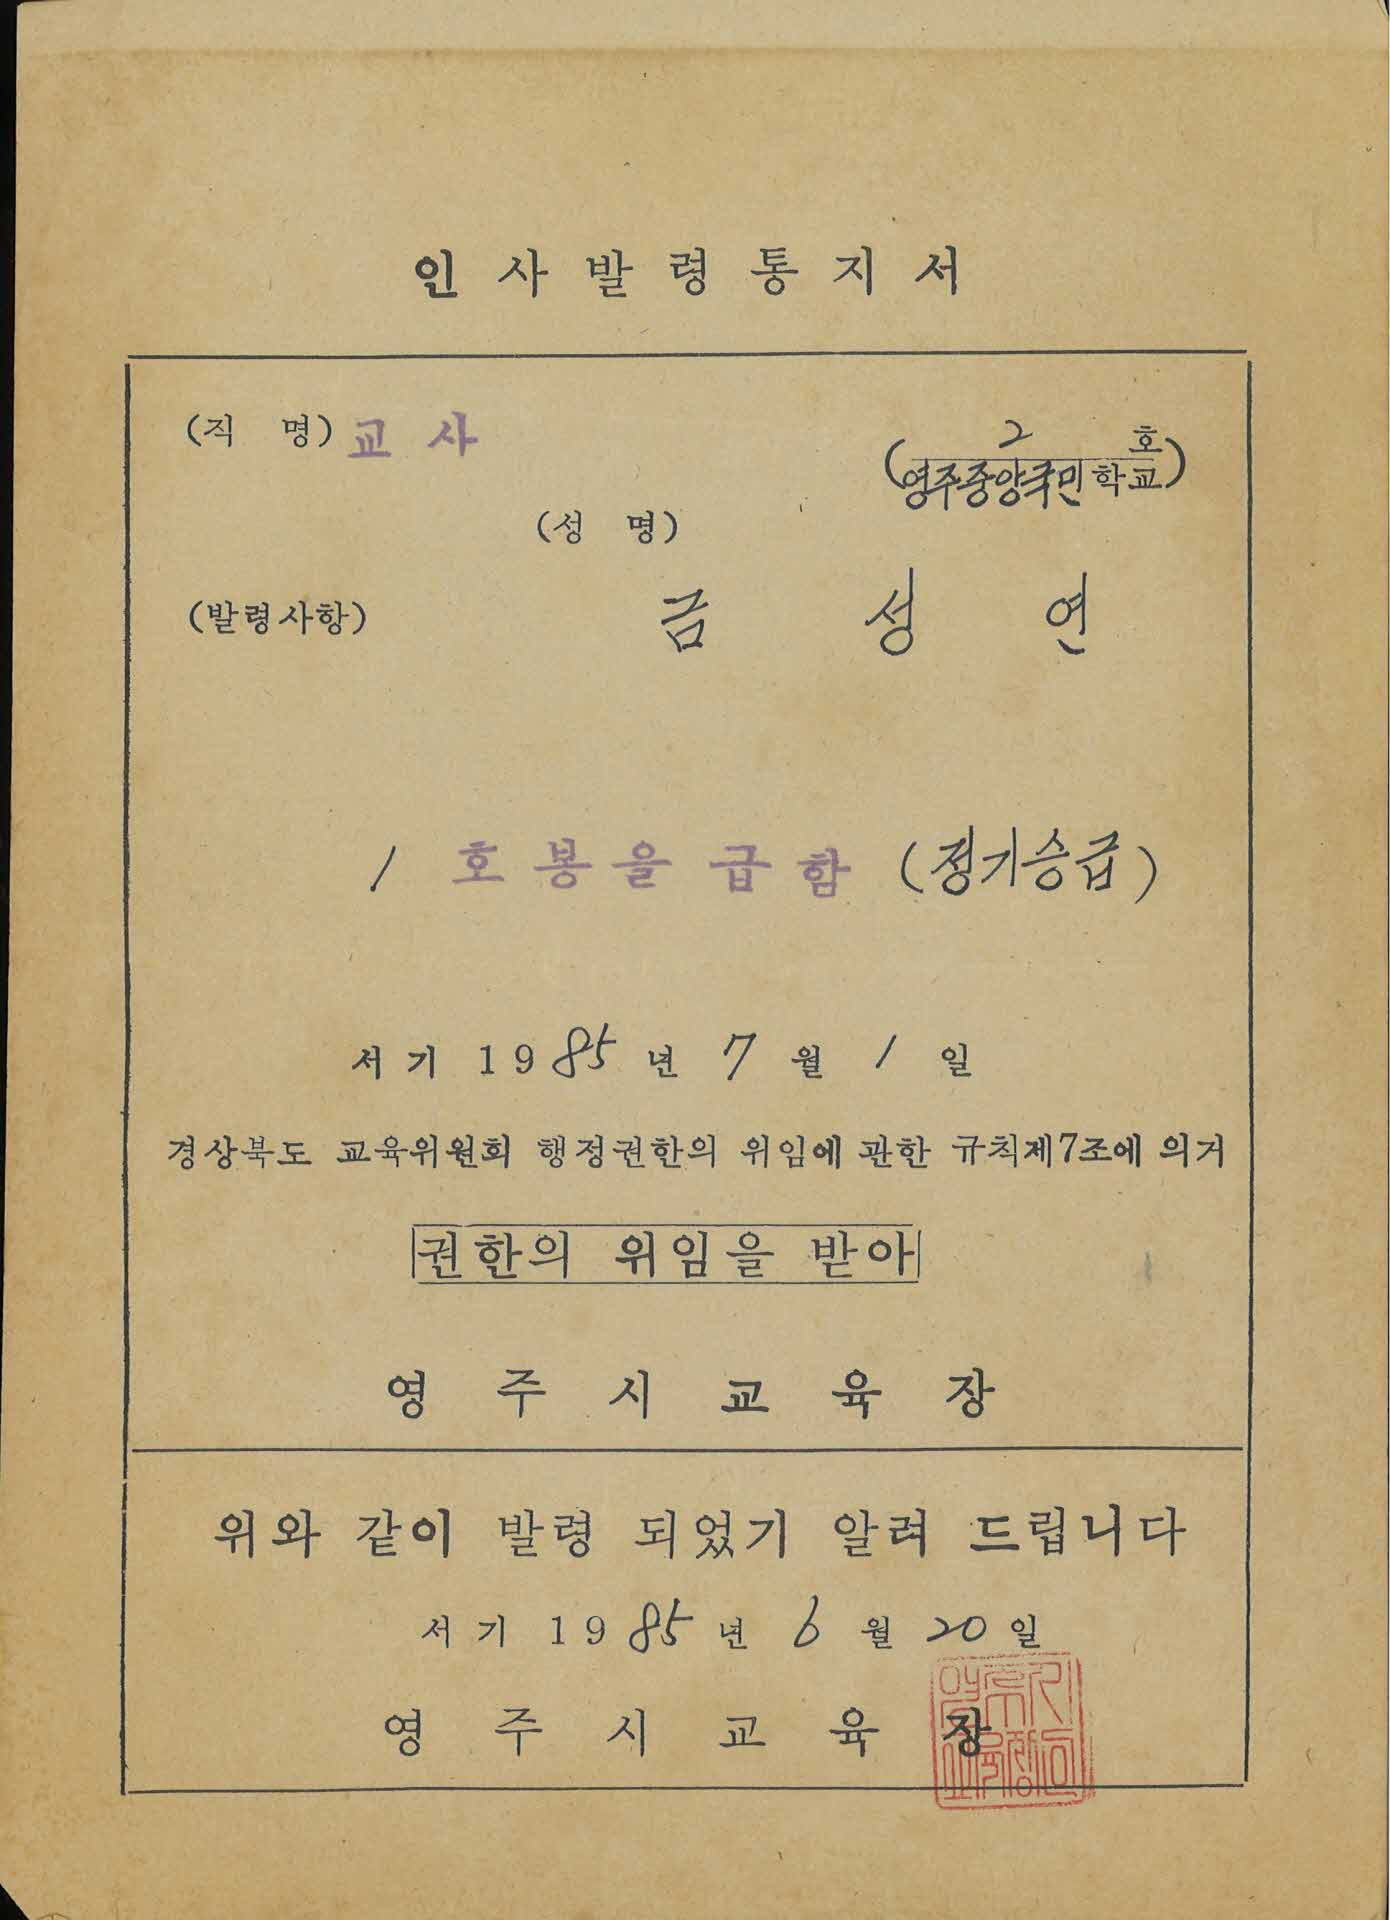 인사발령통지서
(직 명) 교사
( 2 호
영주중앙국민학교)
(성 명)
(발령사항)
금 성 연
1 호봉을급함 (정기승급)
서기 1985년 7월 1일
경상북도 교육위원회 행정권한의 위임에 관한 규칙제7조에 의거
권한의 위임을 받아
영주시교육장
위와 같이 발령 되었기 알려 드립니다
서기 1985년 6월 20일
영주시교육장